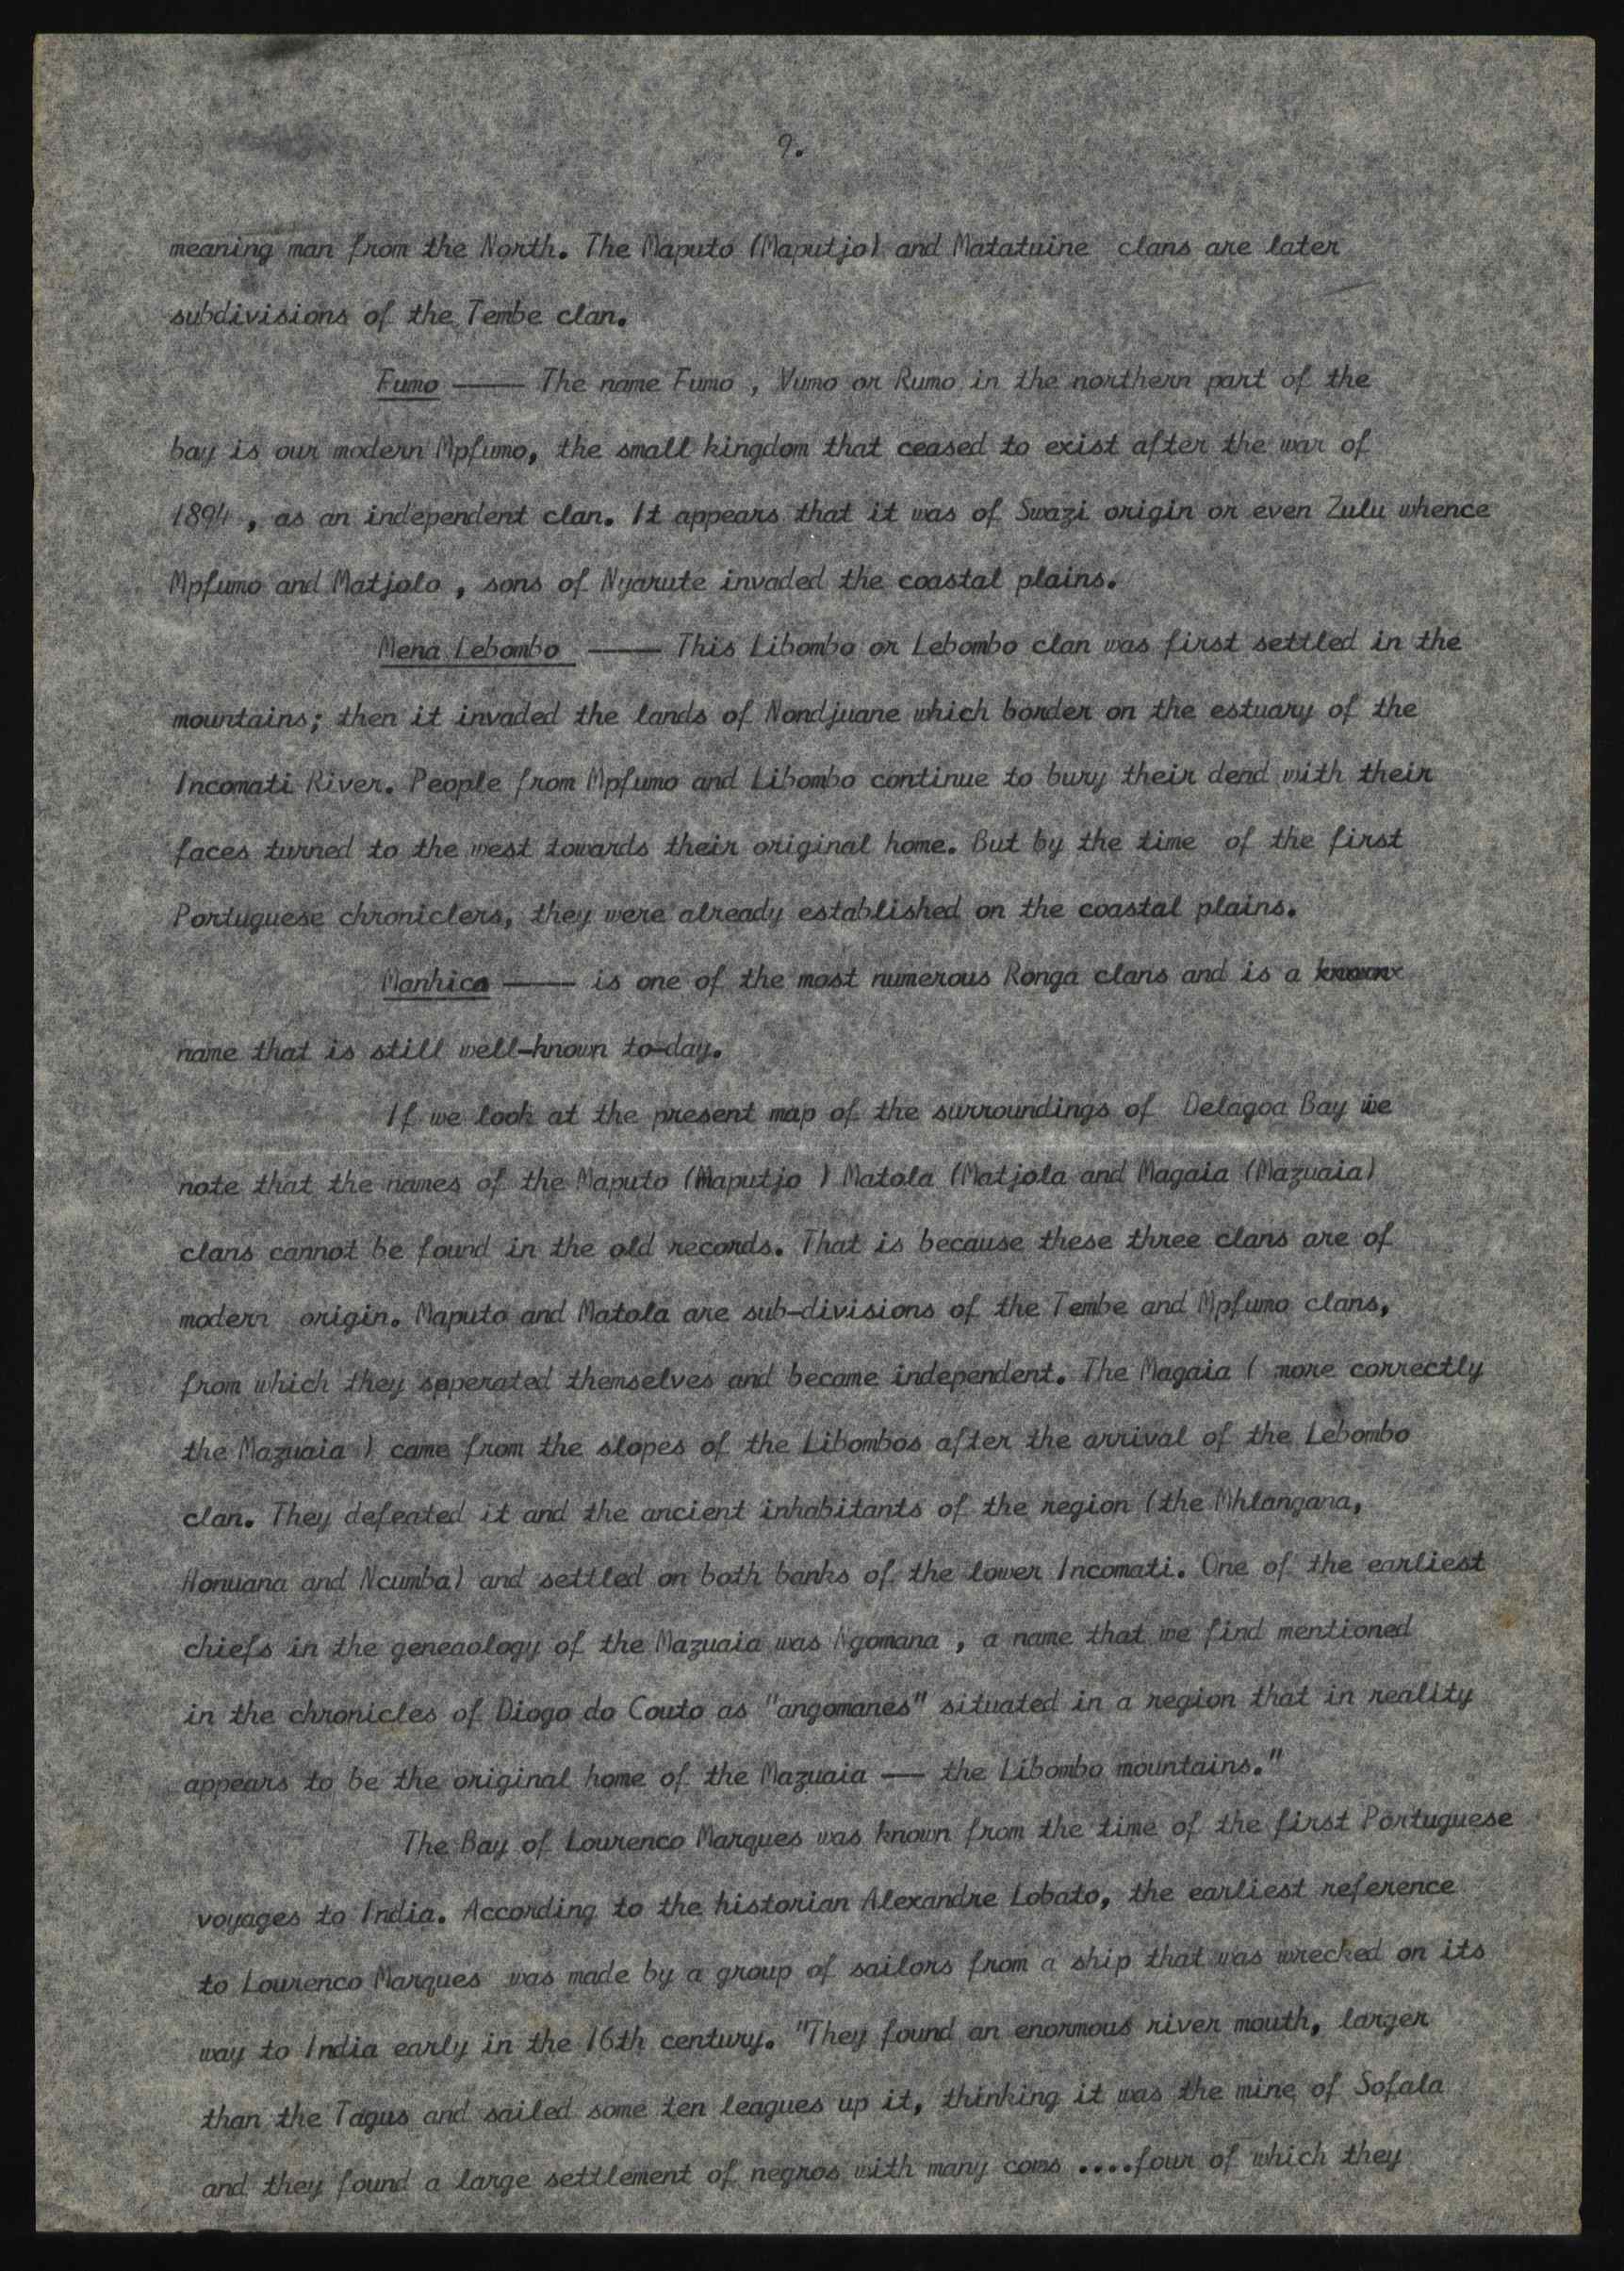 9.
meaning man from the North. The Maputo (Maputjo) and Matatuine clans are later
subdivisions of the Tembe clan.
Fumo —— The name Fumo , Vumo or Rumo in the northern part of the
bay is our modern Mpfumo, the small kingdom that ceased to exist after the war of
1894 , as an independent clan. It appears that it was of Swazi origin or even Zulu whence
Mpfumo and Matjolo , sons of Nyarute invaded the coastal plains.
Mena Lebombo —— This Libombo or Lebombo clan was first settled in the
mountains; then it invaded the lands of Nondjuane which border on the estuary of the
Incomati River. People from Mpfumo and Libombo continue to bury their dend with their
faces turned to the west towards their original home. But by the time of the first
Portuguese chroniclers, they were already established on the coastal plains.
Manhica —— is one of the most numerous Ronga clans and is a known
name that is still well-known to-day.
If we look at the present map of the surroundings of Delagoa Bay we
note that the names of the Maputo (Maputjo ) Matola (Matjola and Magaia (Mazuaia)
clans cannot be found in the old records. That is because these three clans are of
modern origin. Maputo and Matola are sub-divisions of the Tembe and Mpfumo clans,
from which they seperated themselves and became independent. The Magaia ( more correctly
the Mazuaia ) came from the slopes of the Libombos after the arrival of the Lebombo
clan. They defeated it and the ancient inhabitants of the region (the Mhlangana,
Honuana and Ncumba) and settled on both banks of the lower Incomati. One of the earliest
chiefs in the geneaology of the Mazuaia was Ngomana , a name that we find mentioned
in the chronicles of Diogo do Couto as "angomanes" situated in a region that in reality
appears to be the original home of the Mazuaia — the Libombo mountains."
The Bay of Lourenco Marques was known from the time of the first Portuguese
voyages to India. According to the historian Alexandre Lobato, the earliest reference
to Lourenco Marques was made by a group of sailors from a ship that was wrecked on its
way to India early in the 16th century. "They found an enormous river mouth, larger
than the Tagus and sailed some ten leagues up it, thinking it was the mine of Sofala
and they found a large settlement of negros with many cows ....four of which they